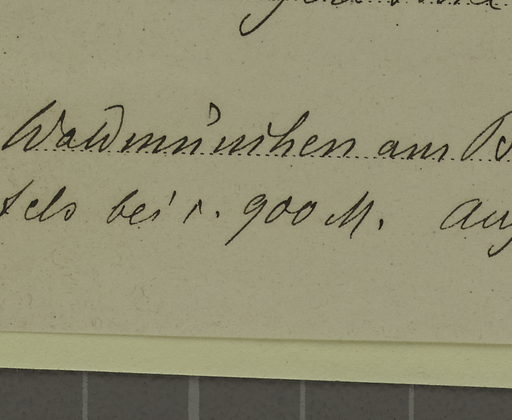 Waldmünchen am
fels bei c. 900 M. Aug